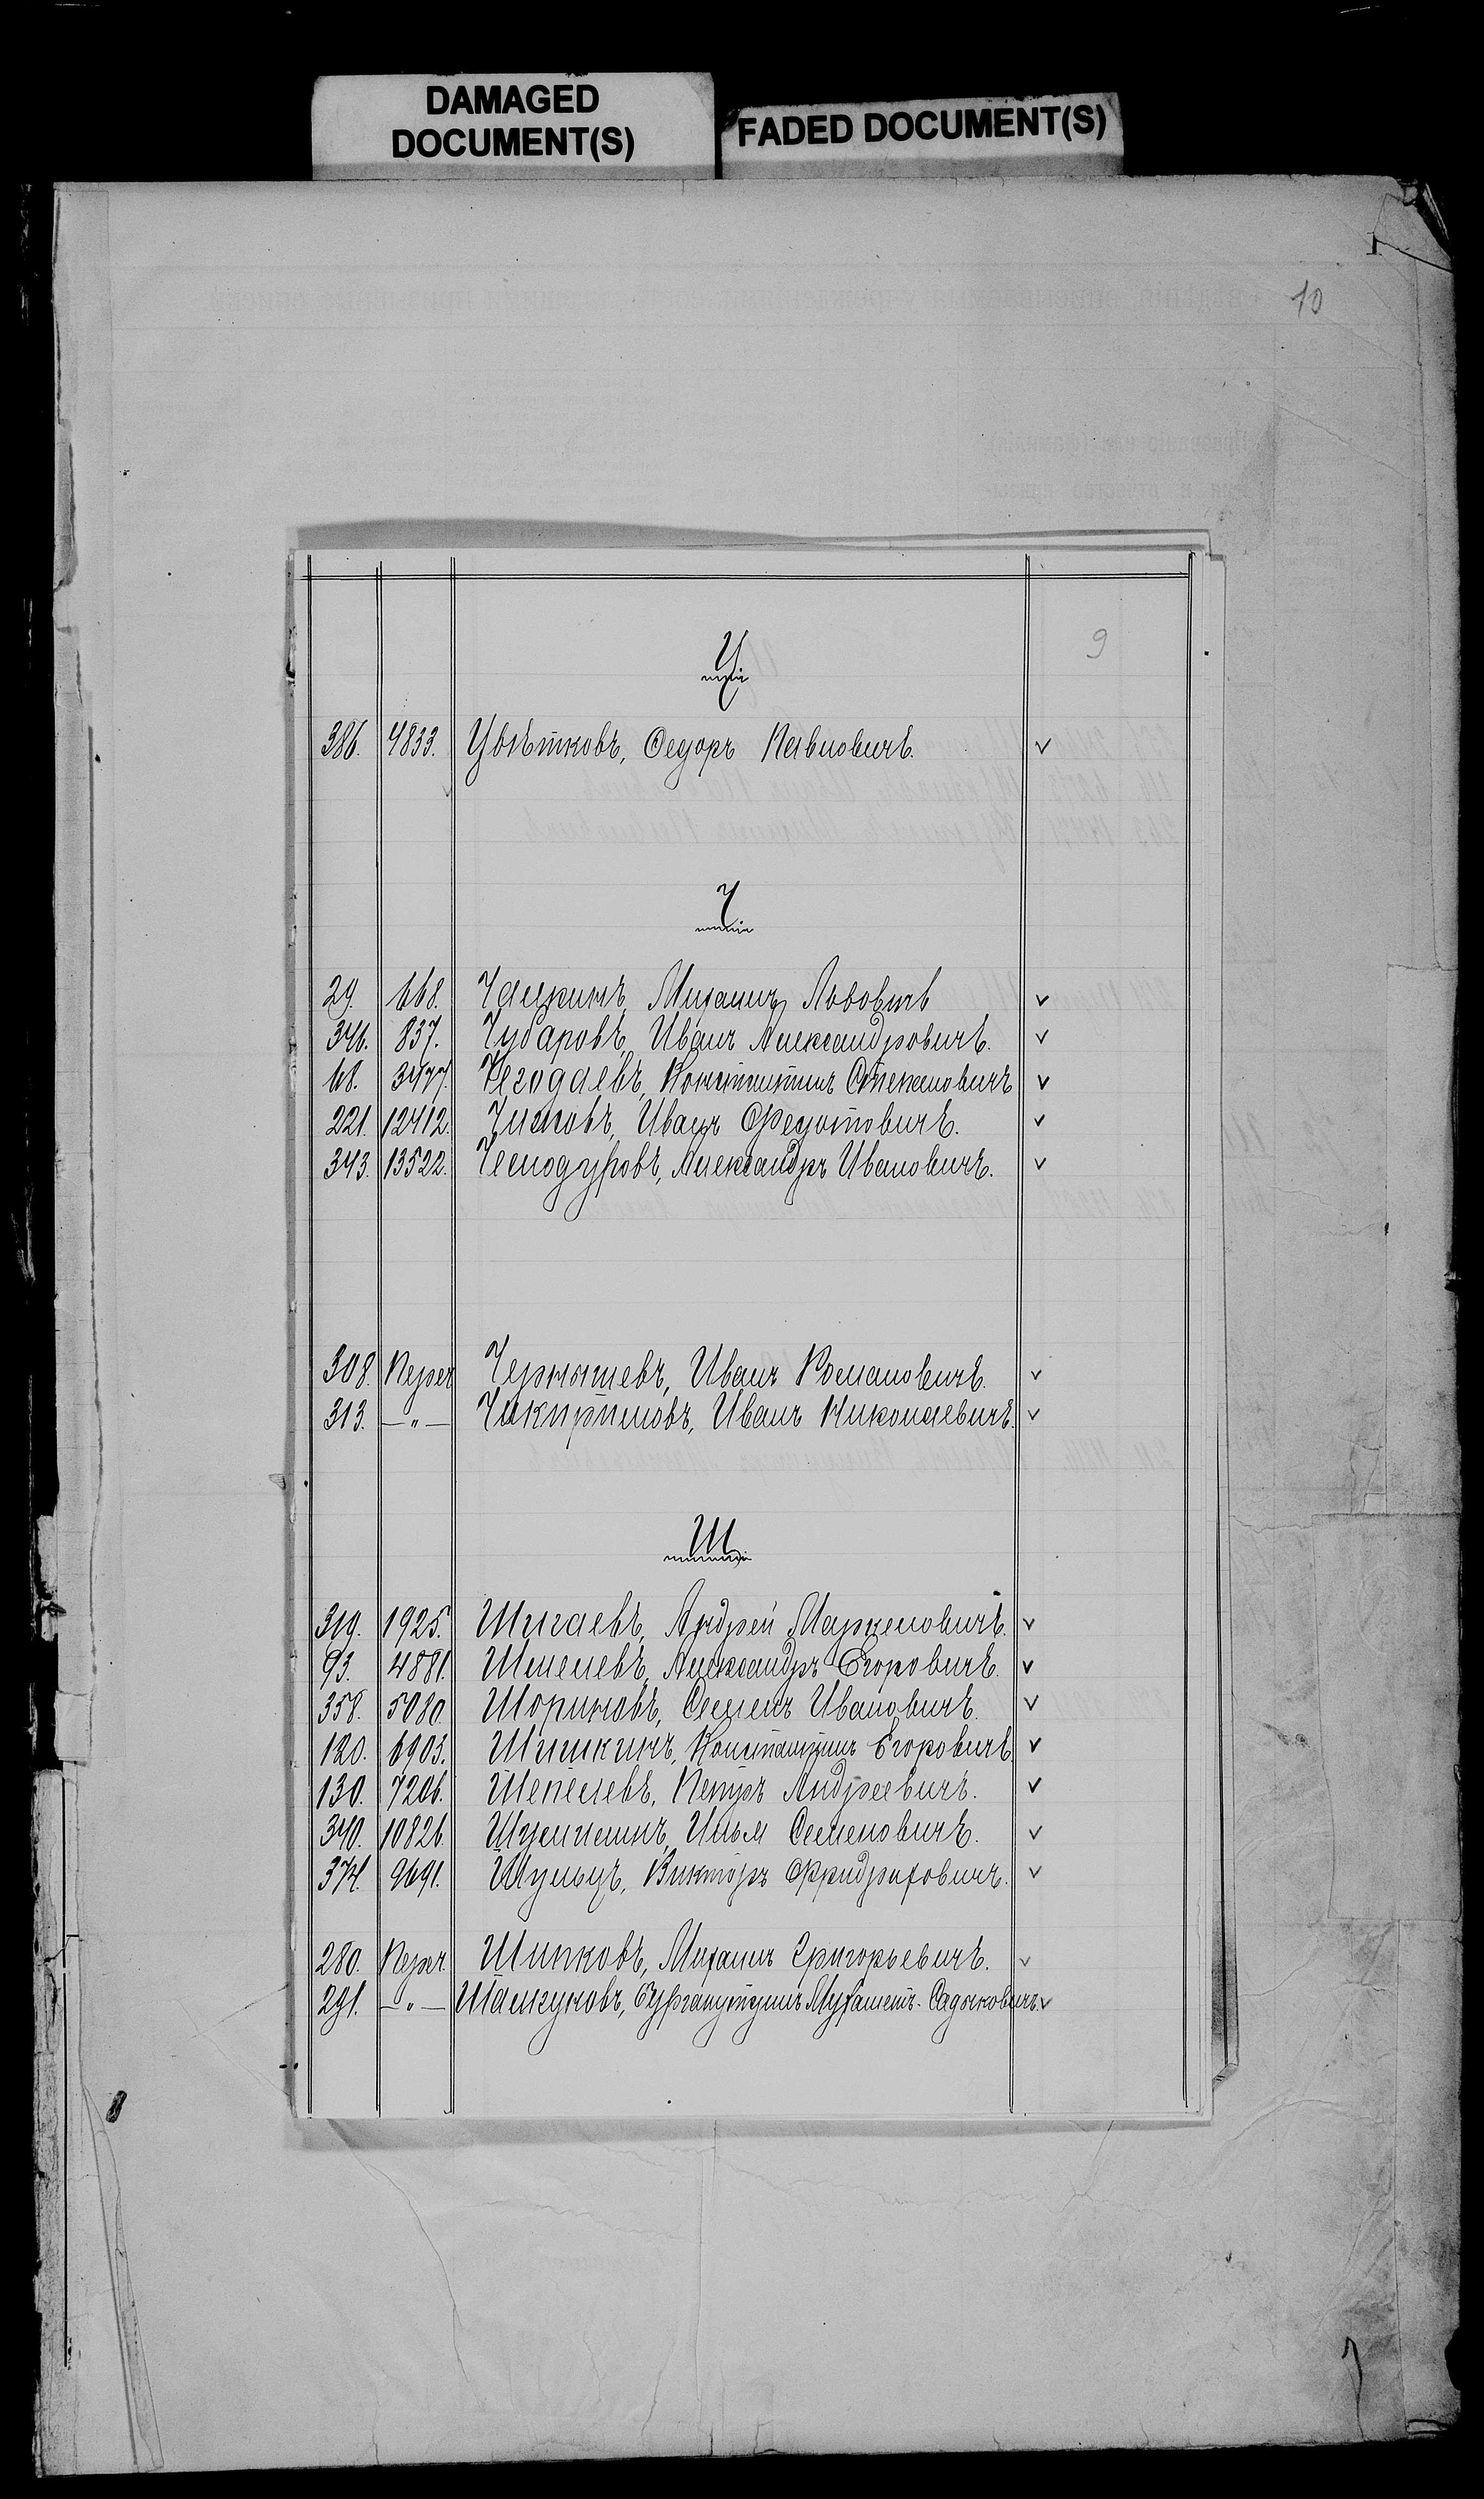 DAMAGED
DOCUMENT(S)
FADED DOCUMENT(S)
10
9
Ц
386. 4833. Цвѣтковъ, Федоръ Павловичъ.
Ч
29. 668. Чацкинъ, Михаилъ Львовичъ
346. 837. Чубаровъ, Иванъ Александровичъ.
68. 3477. Чегодаевъ, Константинъ Степановичъ
221. 12412. Чижовъ, Иванъ Федотовичъ.
343. 13522. Чеснодуровъ, Александръ Ивановичъ.
308. Переч Чернышевъ, Иванъ Романовичъ.
313. —„— Чикириловъ, Иванъ Николаевичъ.
Ш
319. 1925. Шигаевъ, Андрей Маркеловичъ.
93. 4881. Шмелевъ, Александръ Егоровичъ.
358. 5080. Шориновъ, Семенъ Ивановичъ.
120. 6903. Шишкинъ, Константинъ Егоровичъ
130. 7206. Шепелевъ, Петръ Андреевичъ.
340. 10826. Илья Семеновичъ.
374. 9691. Шульцъ, Викторъ Фридриховичъ.
280. Переч. Шипковъ, Михаилъ Григорьевичъ.
291. —„— Садыковичъ.